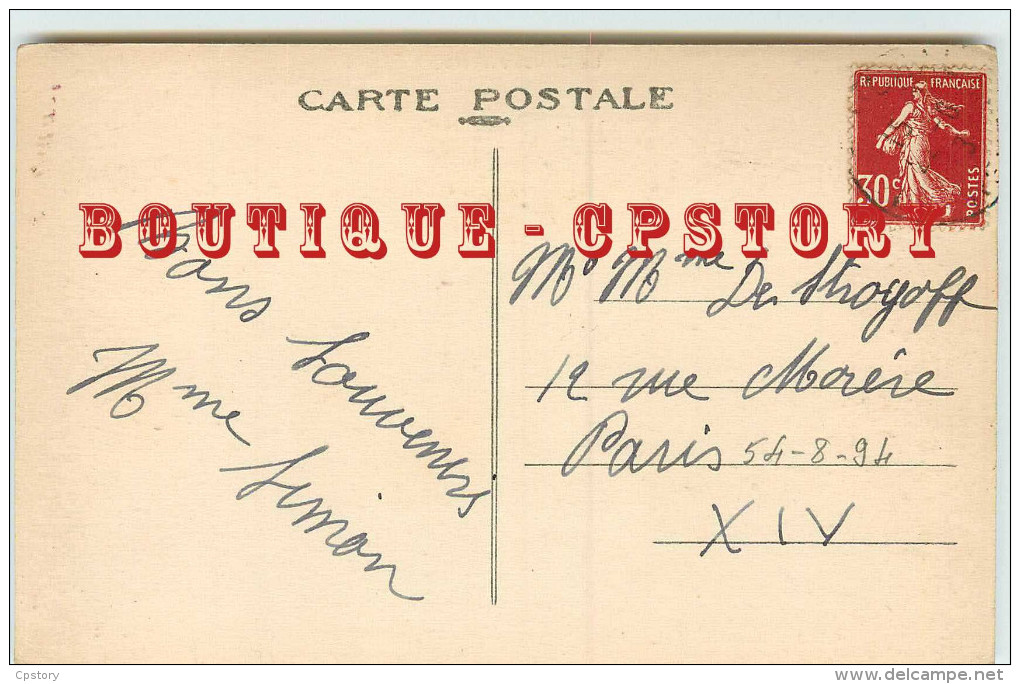 CARTE POSTALE
RÉPUBLIQUE FRANÇAISE
30c
POSTES
BOUTIQUE - CPSTORY
Bons
Souvenirs
Mme Simon
Mr Mme De Stroyoff
12 rue Morère
Paris 54-8-94
XIV
Cpstory
delcampe.net